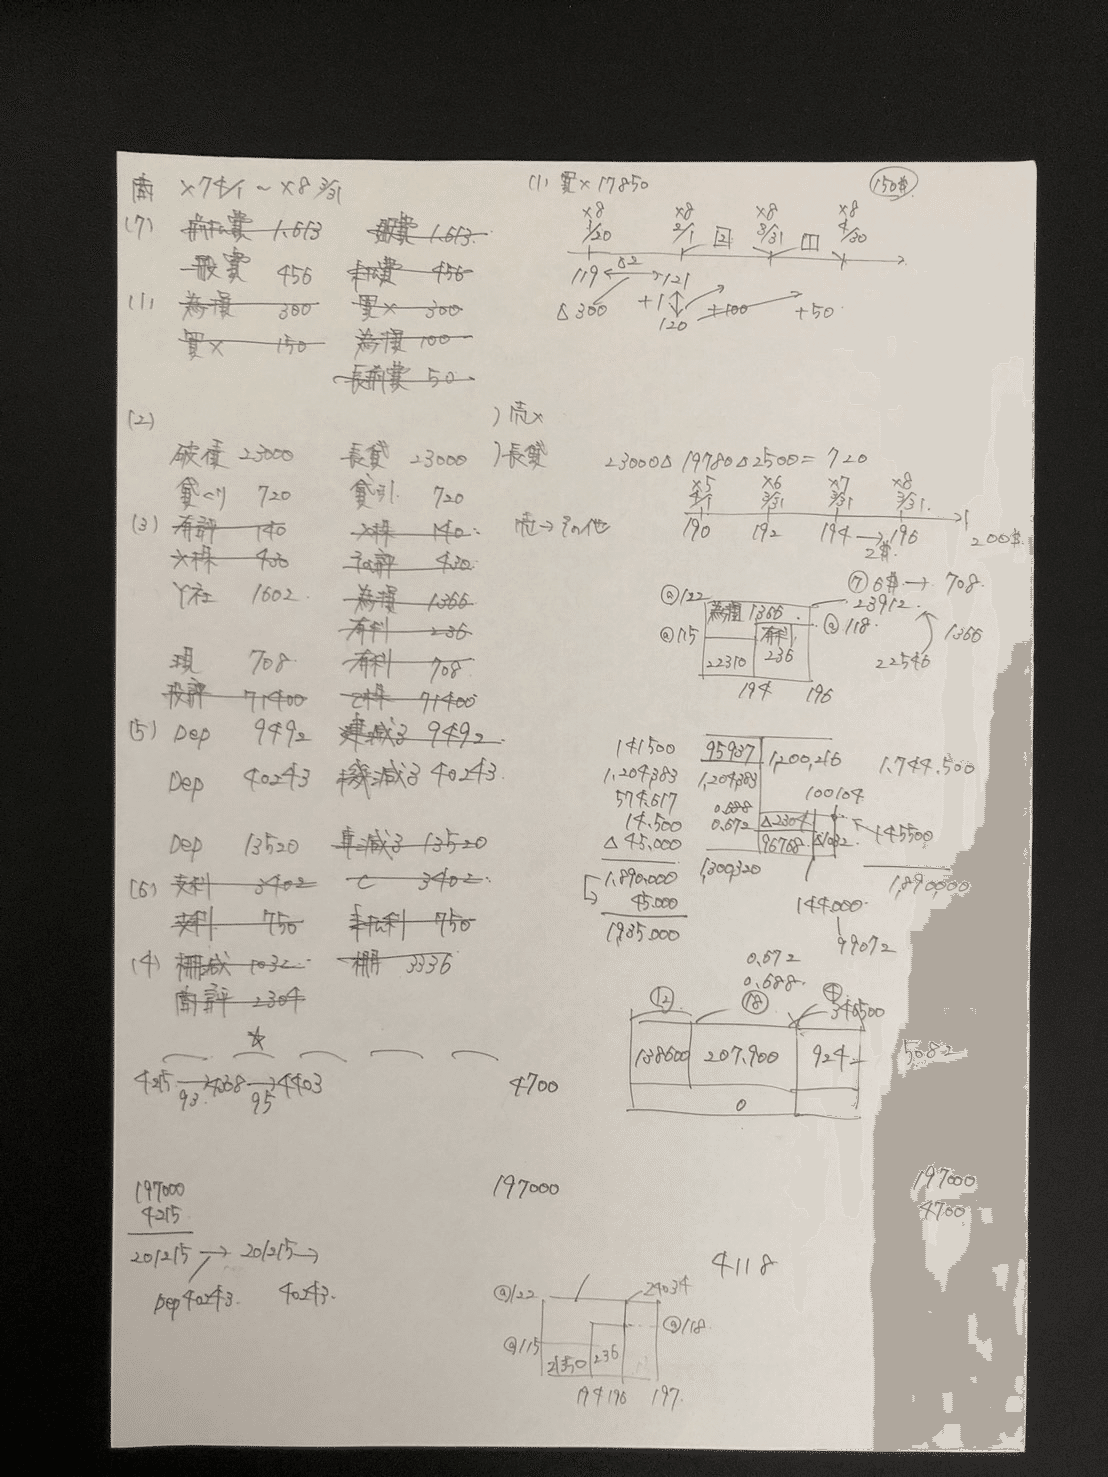 商 ×7 4/1 ~ ×8 3/31
(7) 前払費 1,613 販費 1,613
一般費 456 未払費 456
(1) 為損 300 買× 300
買× 150 為損 100
長前費 50
(2) )売×
破債 23000 長貸 23000 )長貸
貸くり 720 貸引 720
(3) 有評 140 ×株 140 売→その他
×株 430 その評 430
Y社 1602 為損 1366
有利 236
現 708 有利 708
投評 71400 Z株 71400
(5) Dep 9492 建減る 9492
Dep 40243 機減る 40243
Dep 13520 車減る 13520
(6) 支利 3402 C 3402
支利 750 未払利 750
(4) 棚減 1032 棚 3336
商評 2304
☆
4215 → 4308 → 4403 4700
93 95
197000 197000
4215
201215 → 201215 →
Dep 40243 40243
(1) 買× 17850 150$
×8 1/20 ×8 2/1 2 ×8 3/31 1 ×8 4/30
119 Δ2 121
Δ300 +1 120 +100 +50
23000Δ19780Δ2500= 720
×5 4/1 ×6 3/31 ×7 3/31 ×8 3/31
190 192 194 → 196 200$
2$
⑦ 6$ → 708
@122 為損 1366 23912
@115 有利 @118 1366
22310 236 22546
194 196
141500 95937 1,200,216 1,744,500
1,204,383 1,204,383
574,617 0.688 100104
14,500 0.672 Δ2304 145500
Δ 45,000 96768 Δ1032
1,890,000 1,300,320 1,890,000
45,000 144,000
1,935,000 99072
0.672
0.688
⑫ ⑱ ④ 346500
138600 207,900 9242 5082
0
197000
4700
4118
@122 24034
@115 236 @118
194 196 197